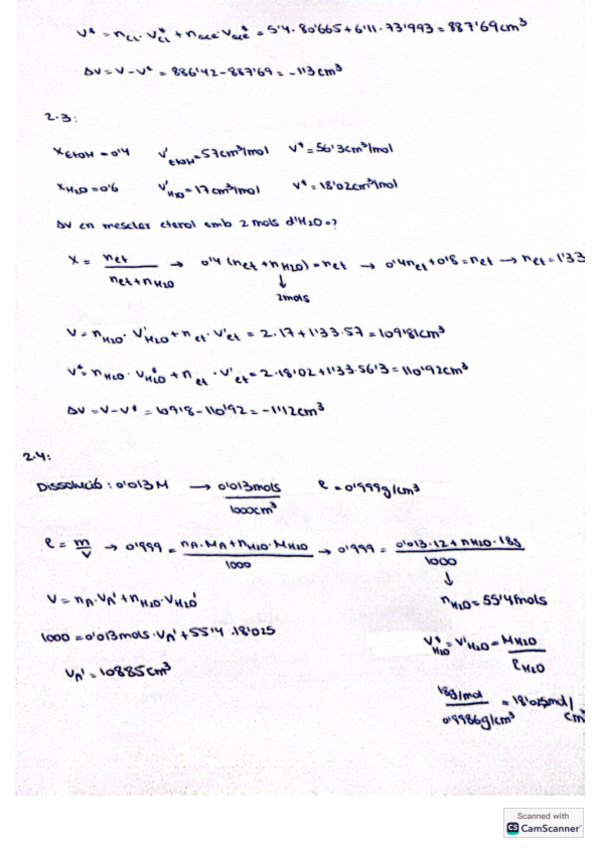 V* = n_cl · V*_cl + n_ace · V*_ace = 5'4 · 80'665 + 6'11 · 73'993 = 887'69 cm³
ΔV = V - V* = 886'42 - 887'69 = -1'13 cm³
2.3:
X_EtOH = 0'4 V'_EtOH = 57 cm³/mol V* = 56'3 cm³/mol
X_H2O = 0'6 V'_H2O = 17 cm³/mol V* = 18'02 cm³/mol
ΔV en mesclar etanol amb 2 mols d'H2O = ?
X = n_et / (n_et + n_H2O) → 0'4 (n_et + n_H2O) = n_et → 0'4 n_et + 0'8 = n_et → n_et = 1'33
↓
2 mols
V = n_H2O · V'_H2O + n_et · V'_et = 2 · 17 + 1'33 · 57 = 109'81 cm³
V* = n_H2O · V*_H2O + n_et · V'_et = 2 · 18'02 + 1'33 · 56'3 = 110'92 cm³
ΔV = V - V* = 109'8 - 110'92 = -1'12 cm³
2.4:
Dissolució: 0'013 M → 0'013 mols / 1000 cm³ ρ = 0'999 g/cm³
ρ = m / V → 0'999 = (n_A · M_A + n_H2O · M_H2O) / 1000 → 0'999 = (0'013 · 12 + n_H2O · 18) / 1000
↓
V = n_A · V_A' + n_H2O · V_H2O' n_H2O = 55'4 mols
1000 = 0'013 mols · V_A' + 55'4 · 18'025
V*_H2O = V'_H2O = M_H2O / ρ_H2O
V_A' = 10885 cm³
18 g/mol / 0'9986 g/cm³ = 18'025 mol/cm³
Scanned with
CS CamScanner